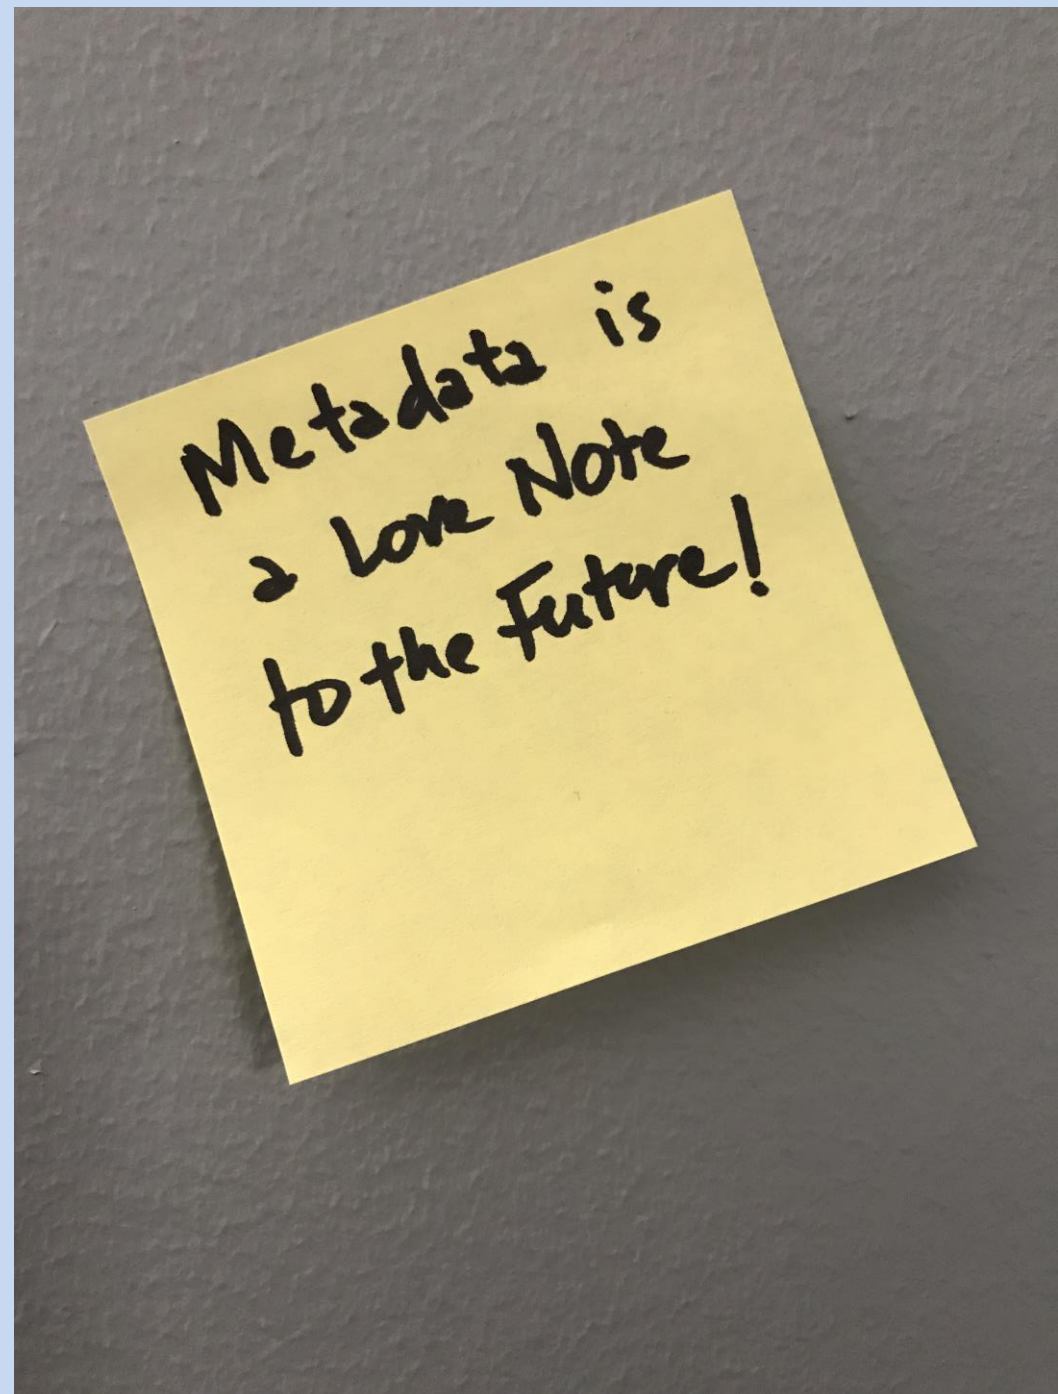 Metadata is
a Love Note
to the Future!